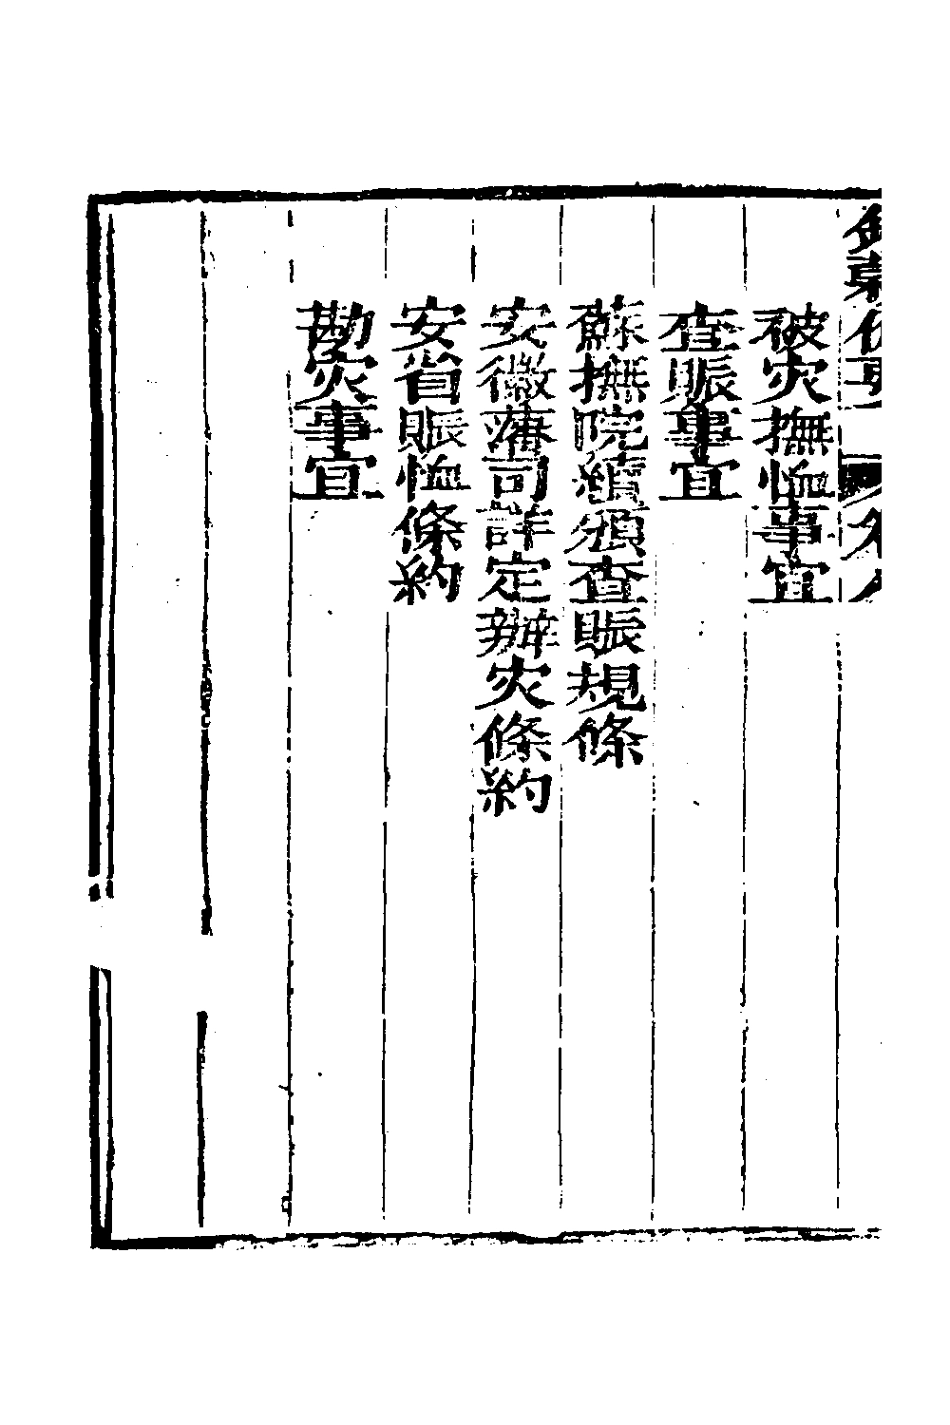 被灾撫恤事宜
查賑事宜
蘇撫院續頒查賑規條
安徽藩司詳定辦灾條約
安省賑恤條約
勘灾事宜